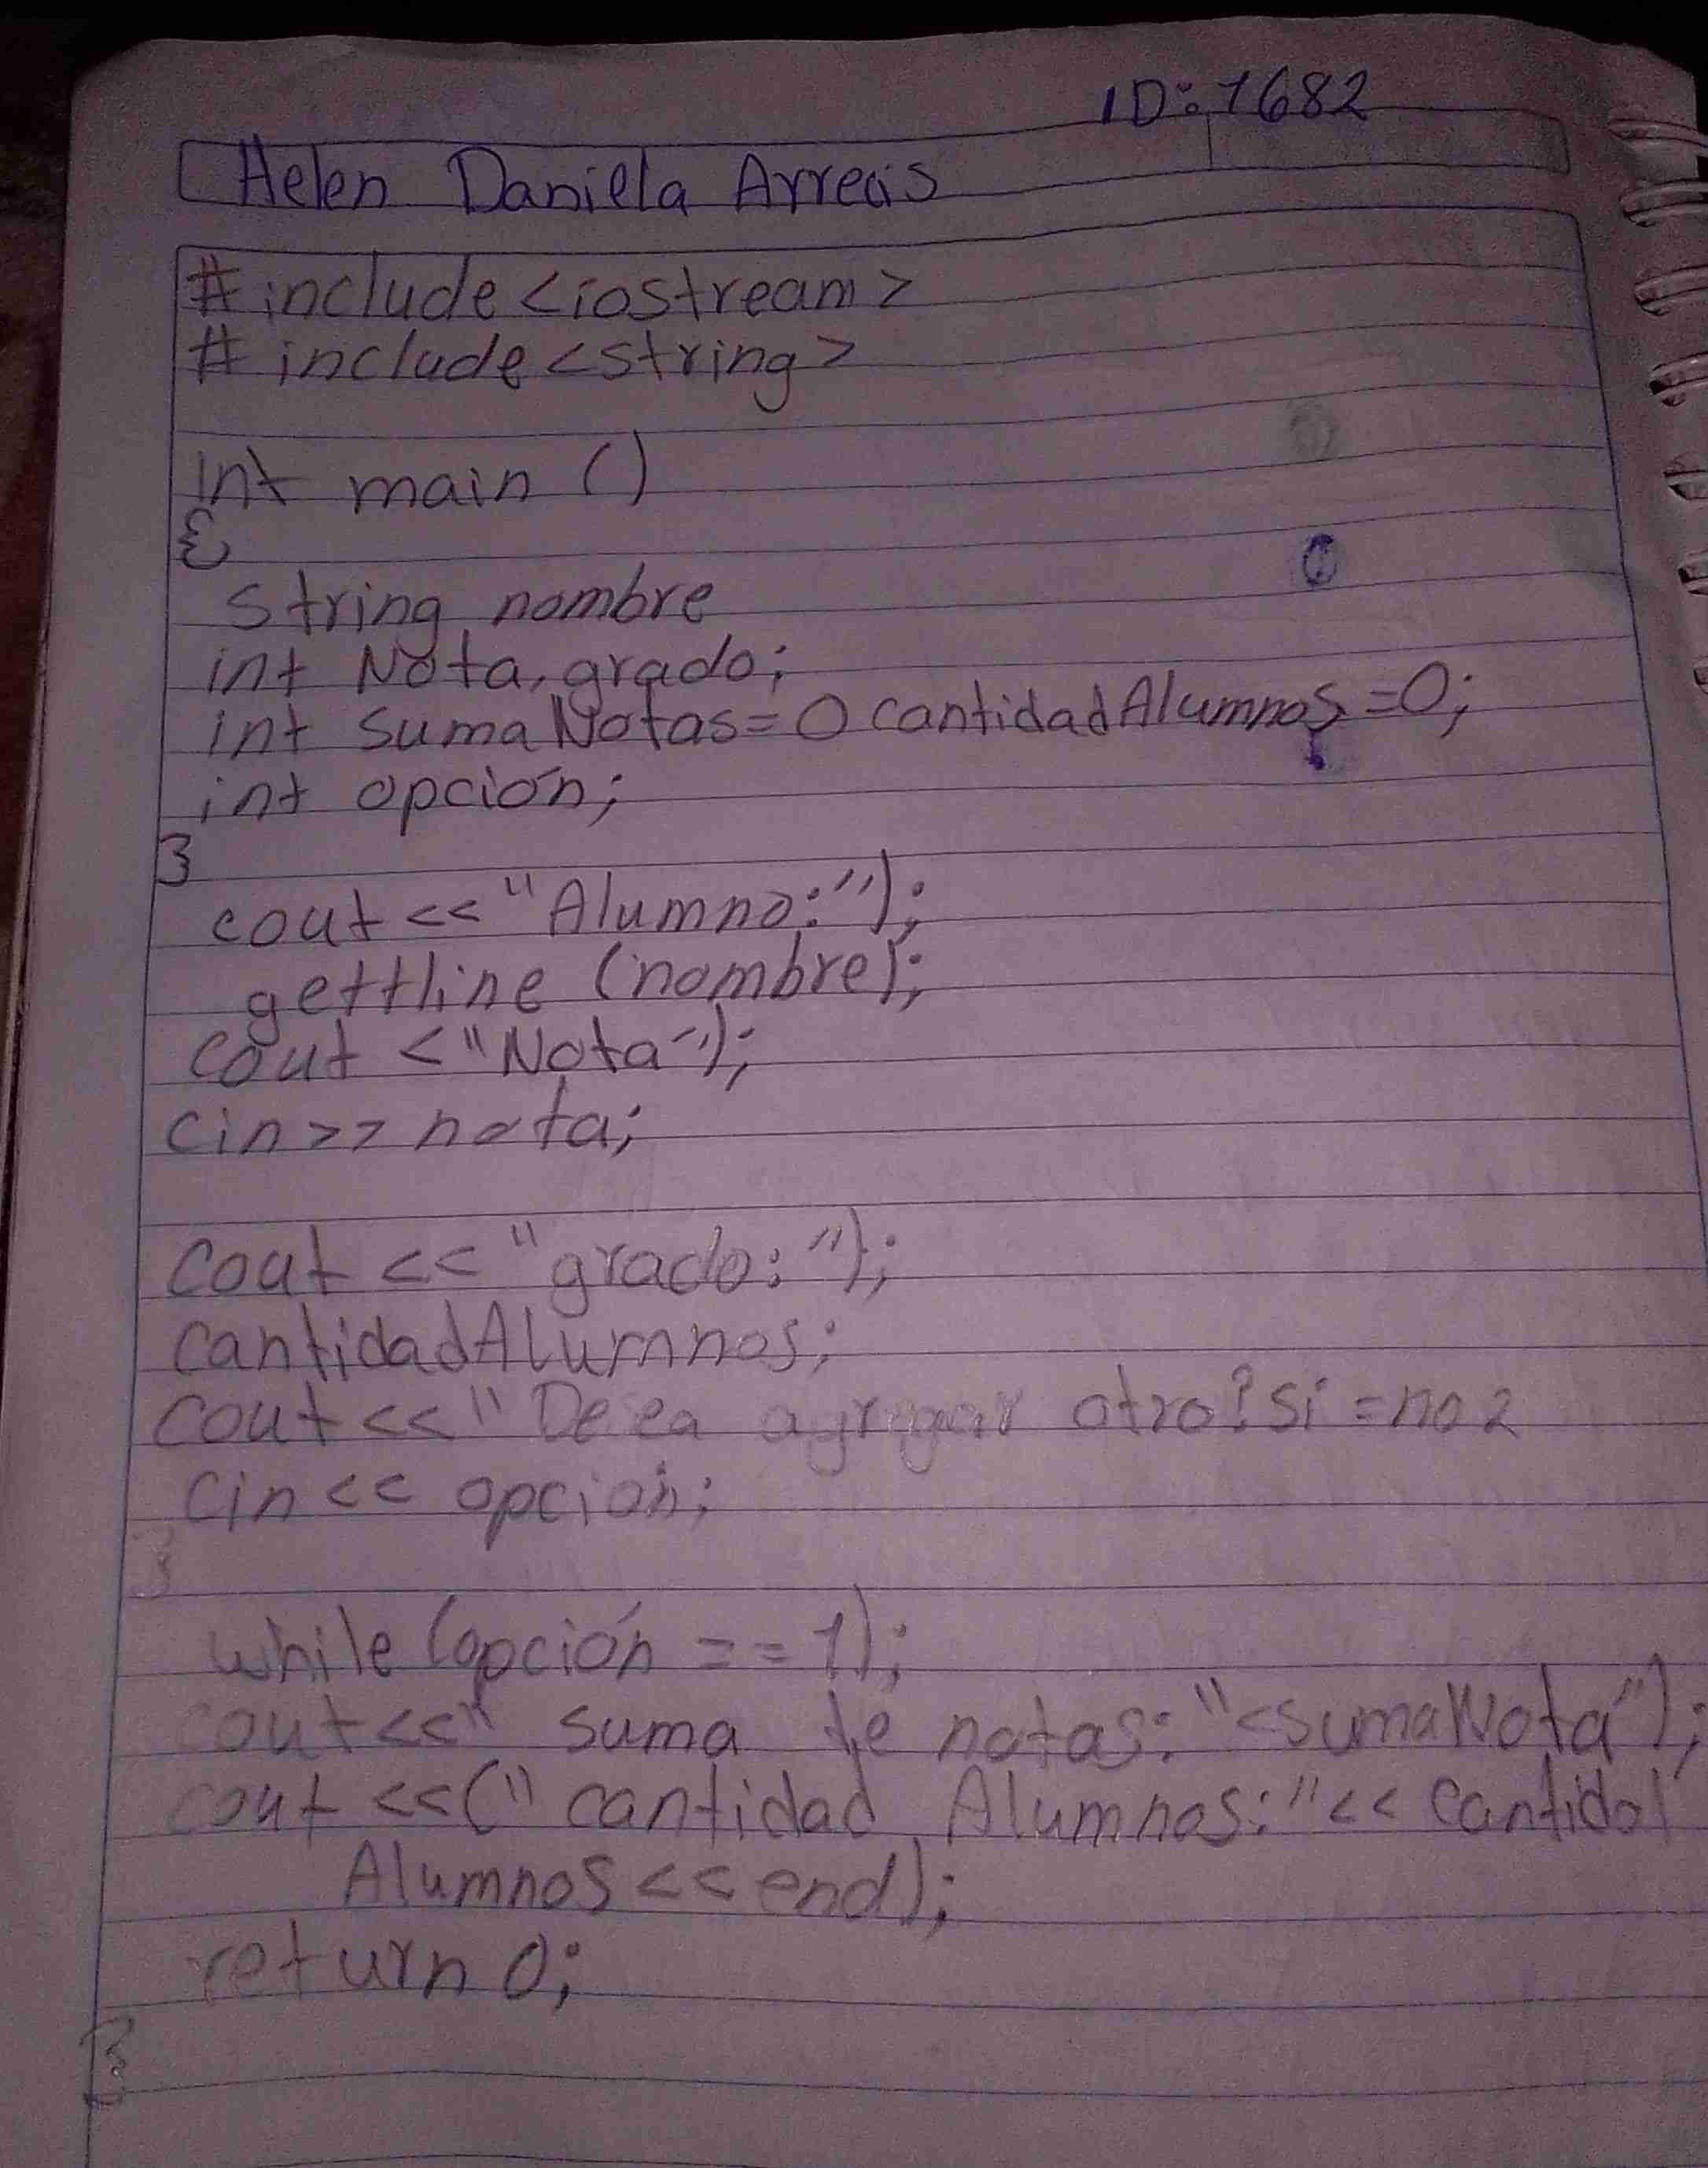 ID: 1682
Helen Daniela Arreais
#include <iostream>
# include <string>
int main ()
{
string nombre
int Nota, grado;
int sumaNotas=0 cantidadAlumnos=0;
int opción;
}
cout << "Alumno:");
gettline (nombre);
cout < "Nota");
cin >> nota;
cout << "grado:");
cantidadAlumnos;
cout << " De ea agrgar otro? si = no 2
cin << opción;
}
while (opción == 1);
cout << " suma de notas: "<sumaNota");
cout << (" cantidad Alumnos:" << Cantidad
Alumnos << end);
return 0;
}